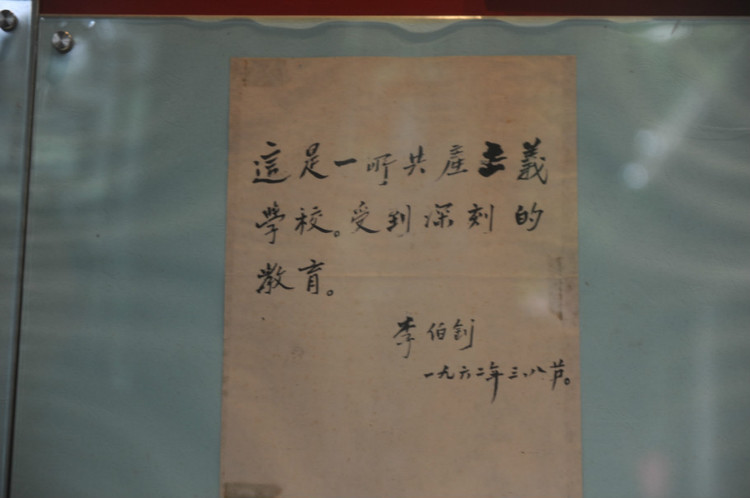 這是一所共產主義
學校。受到深刻的
教育。
李伯釗
一九六二年三.八节。